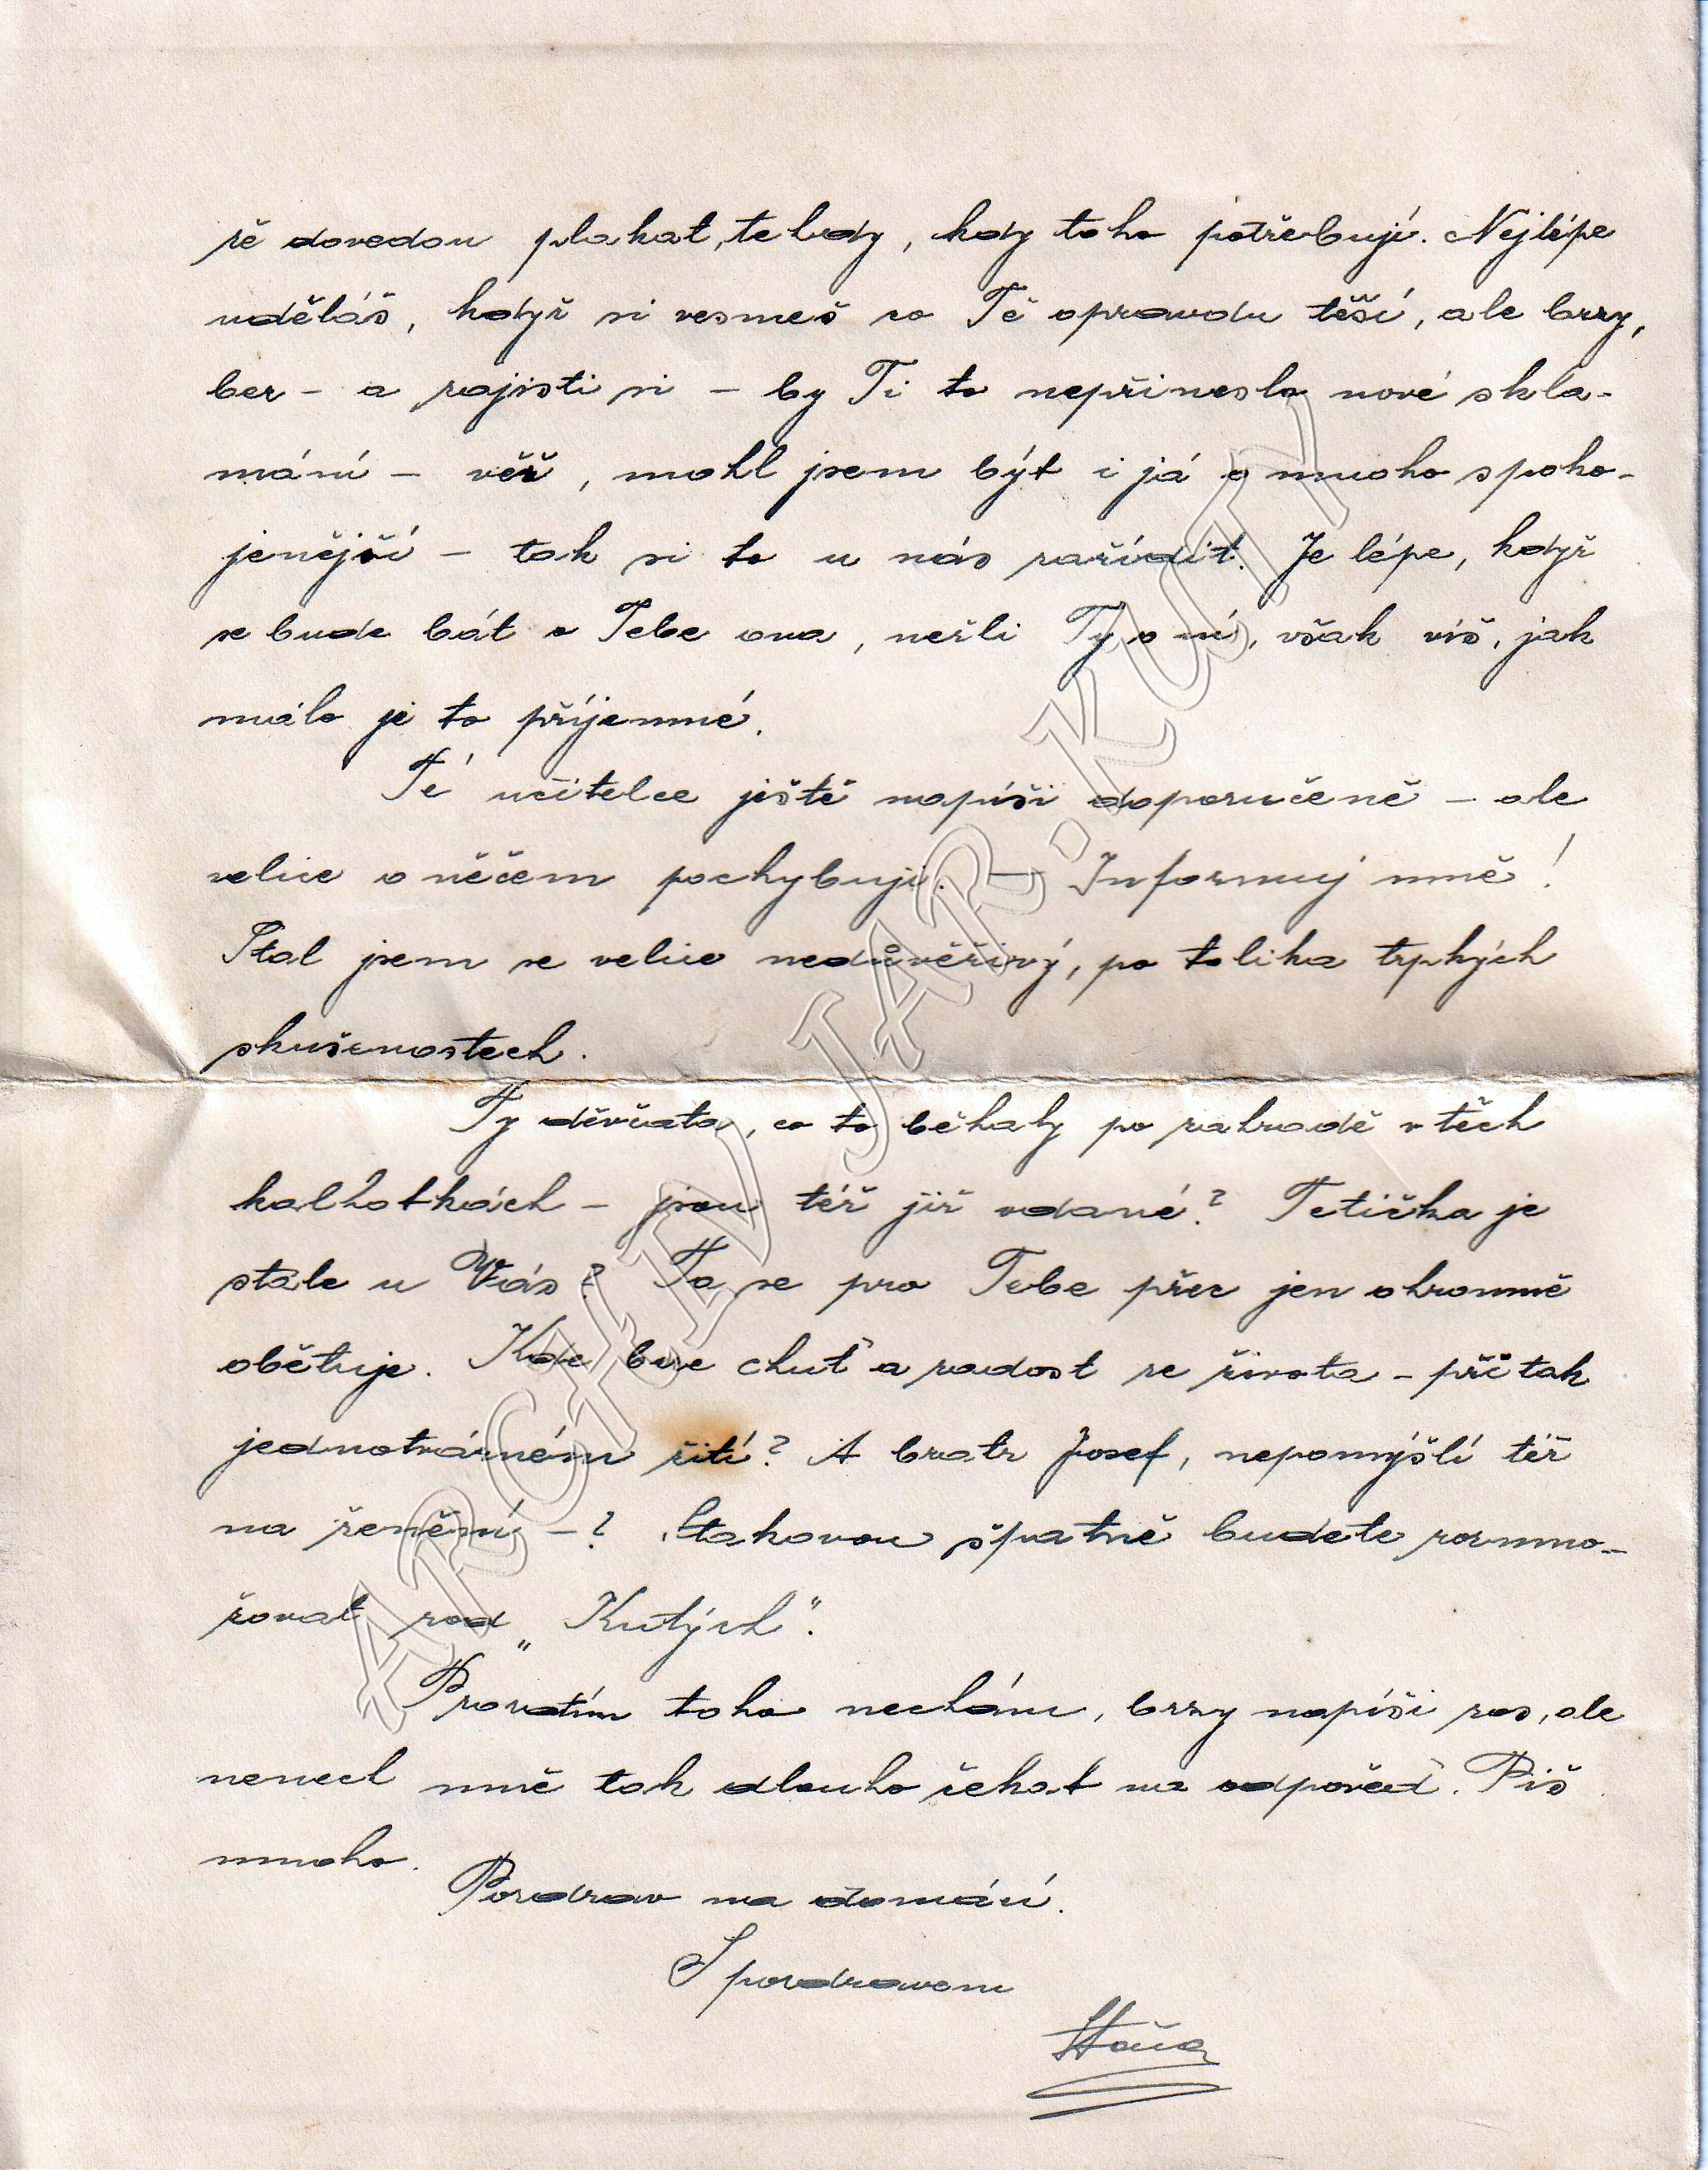 že dovedou plakat, tehdy, kdy toho potřebují. Nejlépe
uděláš, když si vesmeš co Tě opravdu těší, ale brzy,
ber – a zajisti si – by Ti to nepřineslo nové skla-
mání – věř, mohl jsem být i já o mnoho spoko-
jenější – tak si to u nás zařídit. Je lépe, když
se bude bát o Tebe ona, nežli Ty o ní, však víš, jak
málo je to příjemné.
Té učitelce ještě napíši doporučeně – ale
velice o něčem pochybuji. — Informuj mně!
Stal jsem se velice nedůvěřivý, po tolika trpkých
skušenostech.
Ty děvčata, co to běhaly po zahradě v těch
kalhotkách – jsou též již vdané? Tetička je
stále u Vás? Ta se pro Tebe přec jen ohromně
obětuje. Kde bere chuť a radost ze života – při tak
jednotvárném žití? A bratr Josef, nepomýšlí též
na ženění –? Takovou špatně budete rozmno-
žovat rod „Kutých".
Prozatím toho nechám, brzy napíši zas, ale
nenech mně tak dlouho čekat na odpověď. Piš
mnoho.
Pozdrav na domácí.
S pozdravem
Stáňa
ARCHIV JAR. KUTÝ